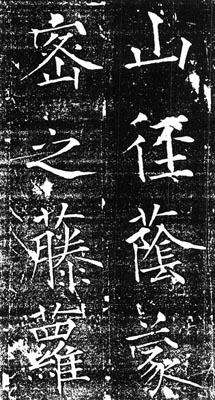 山徑蔭蒙
密之藤蘿